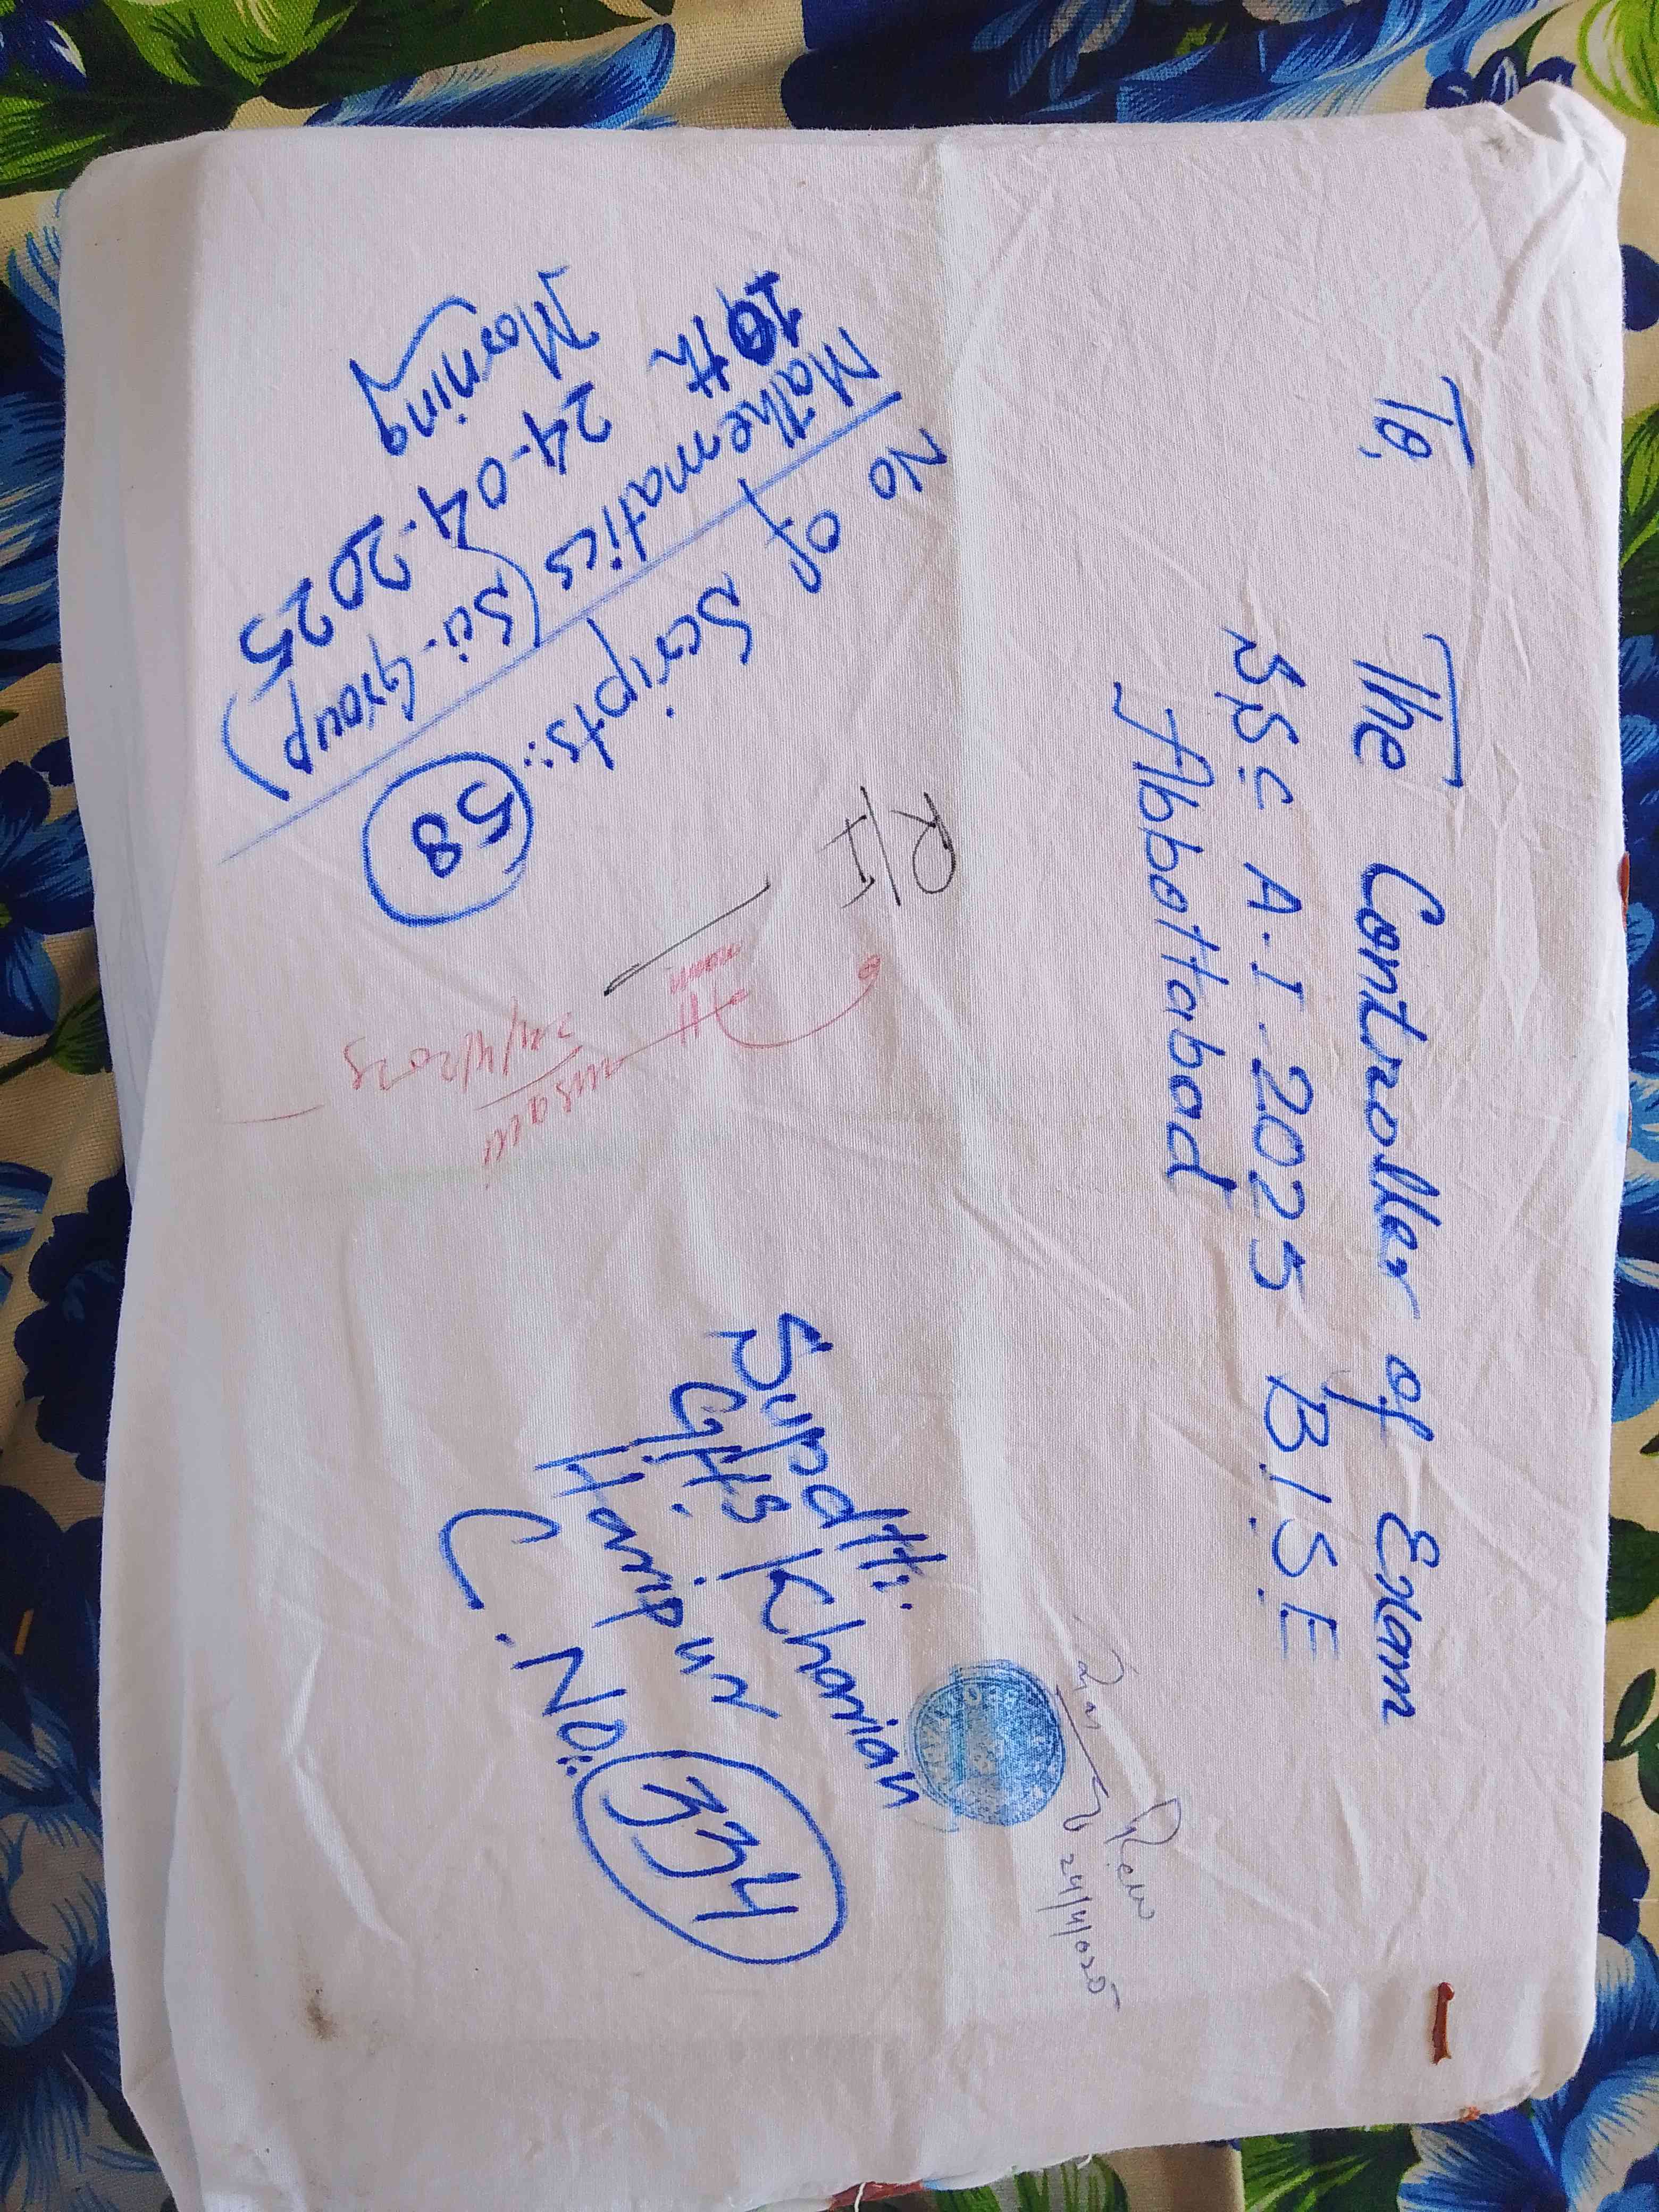 To,
The Controller of Exam
SSC A.I-2025 B.I.S.E
Abbottabad
No of Scripts: 58
Mathematics (Sci-Group)
10th
24-04-2025
Morning
R/I
24/4/2025
24/4/025
Supdtt:
GHS Kharian
Haripur
C.No: 334